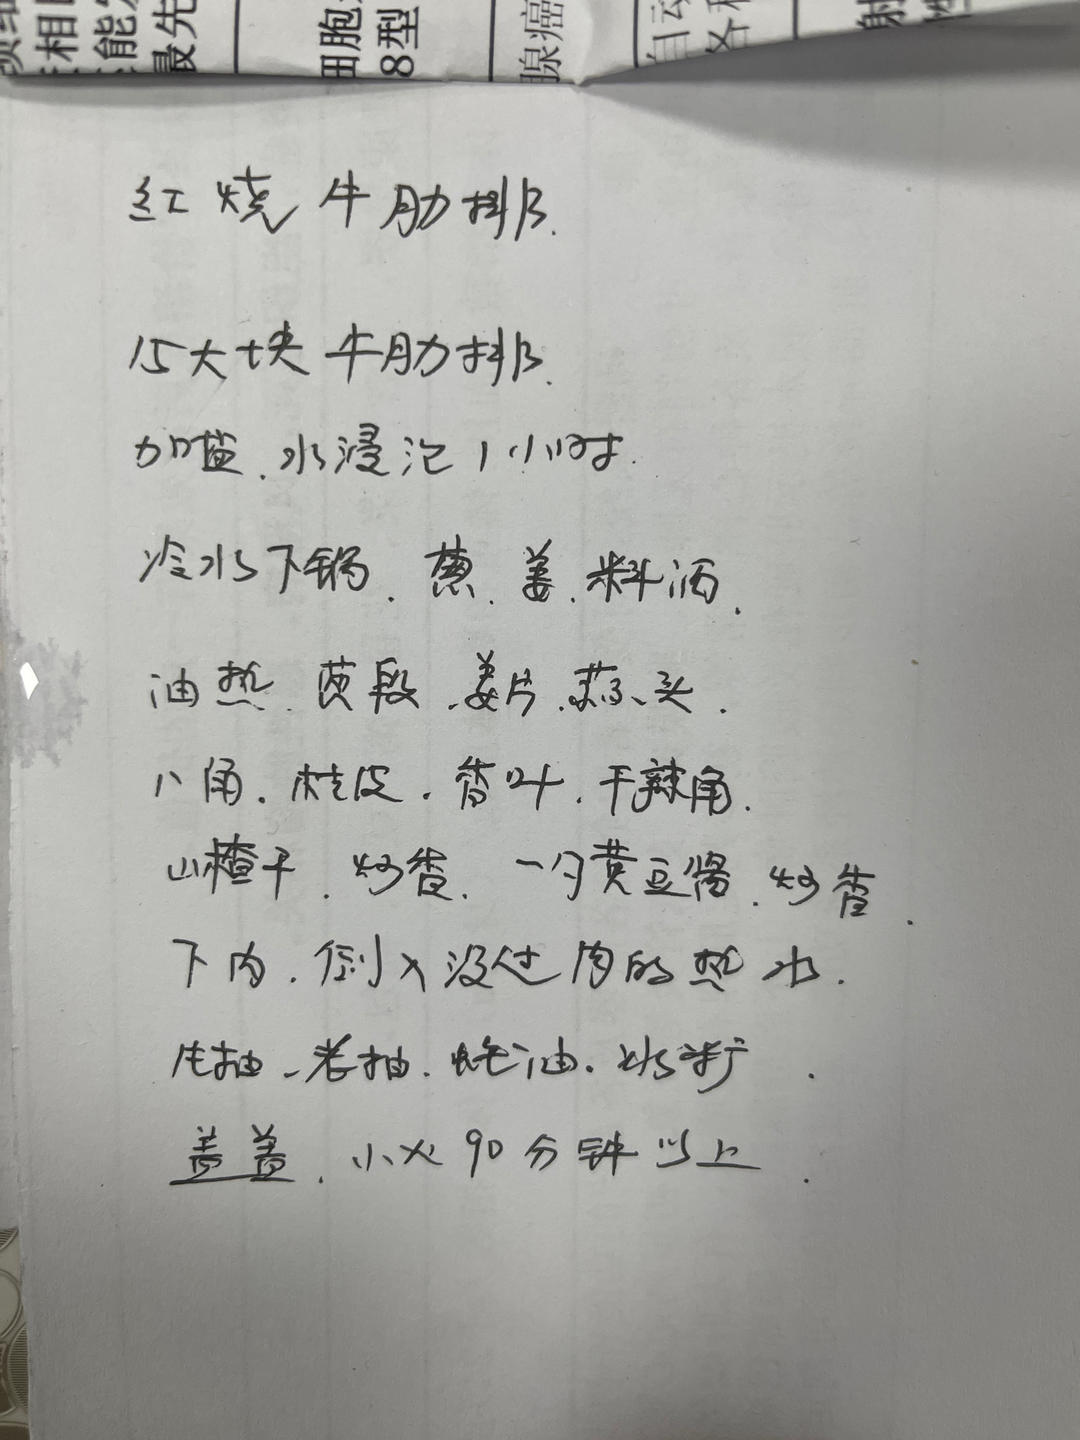 红烧牛肋排.
15大块牛肋排.
加盐.水浸泡1小时.
冷水下锅.葱.姜.料酒.
油热.葱段.姜片.蒜头.
八角.桂皮.香叶.干辣角.
山楂干.炒香.一勺黄豆酱.炒香.
下肉.倒入没过肉的热水.
生抽.老抽.蚝油.冰糖.
盖盖.小火90分钟以上.